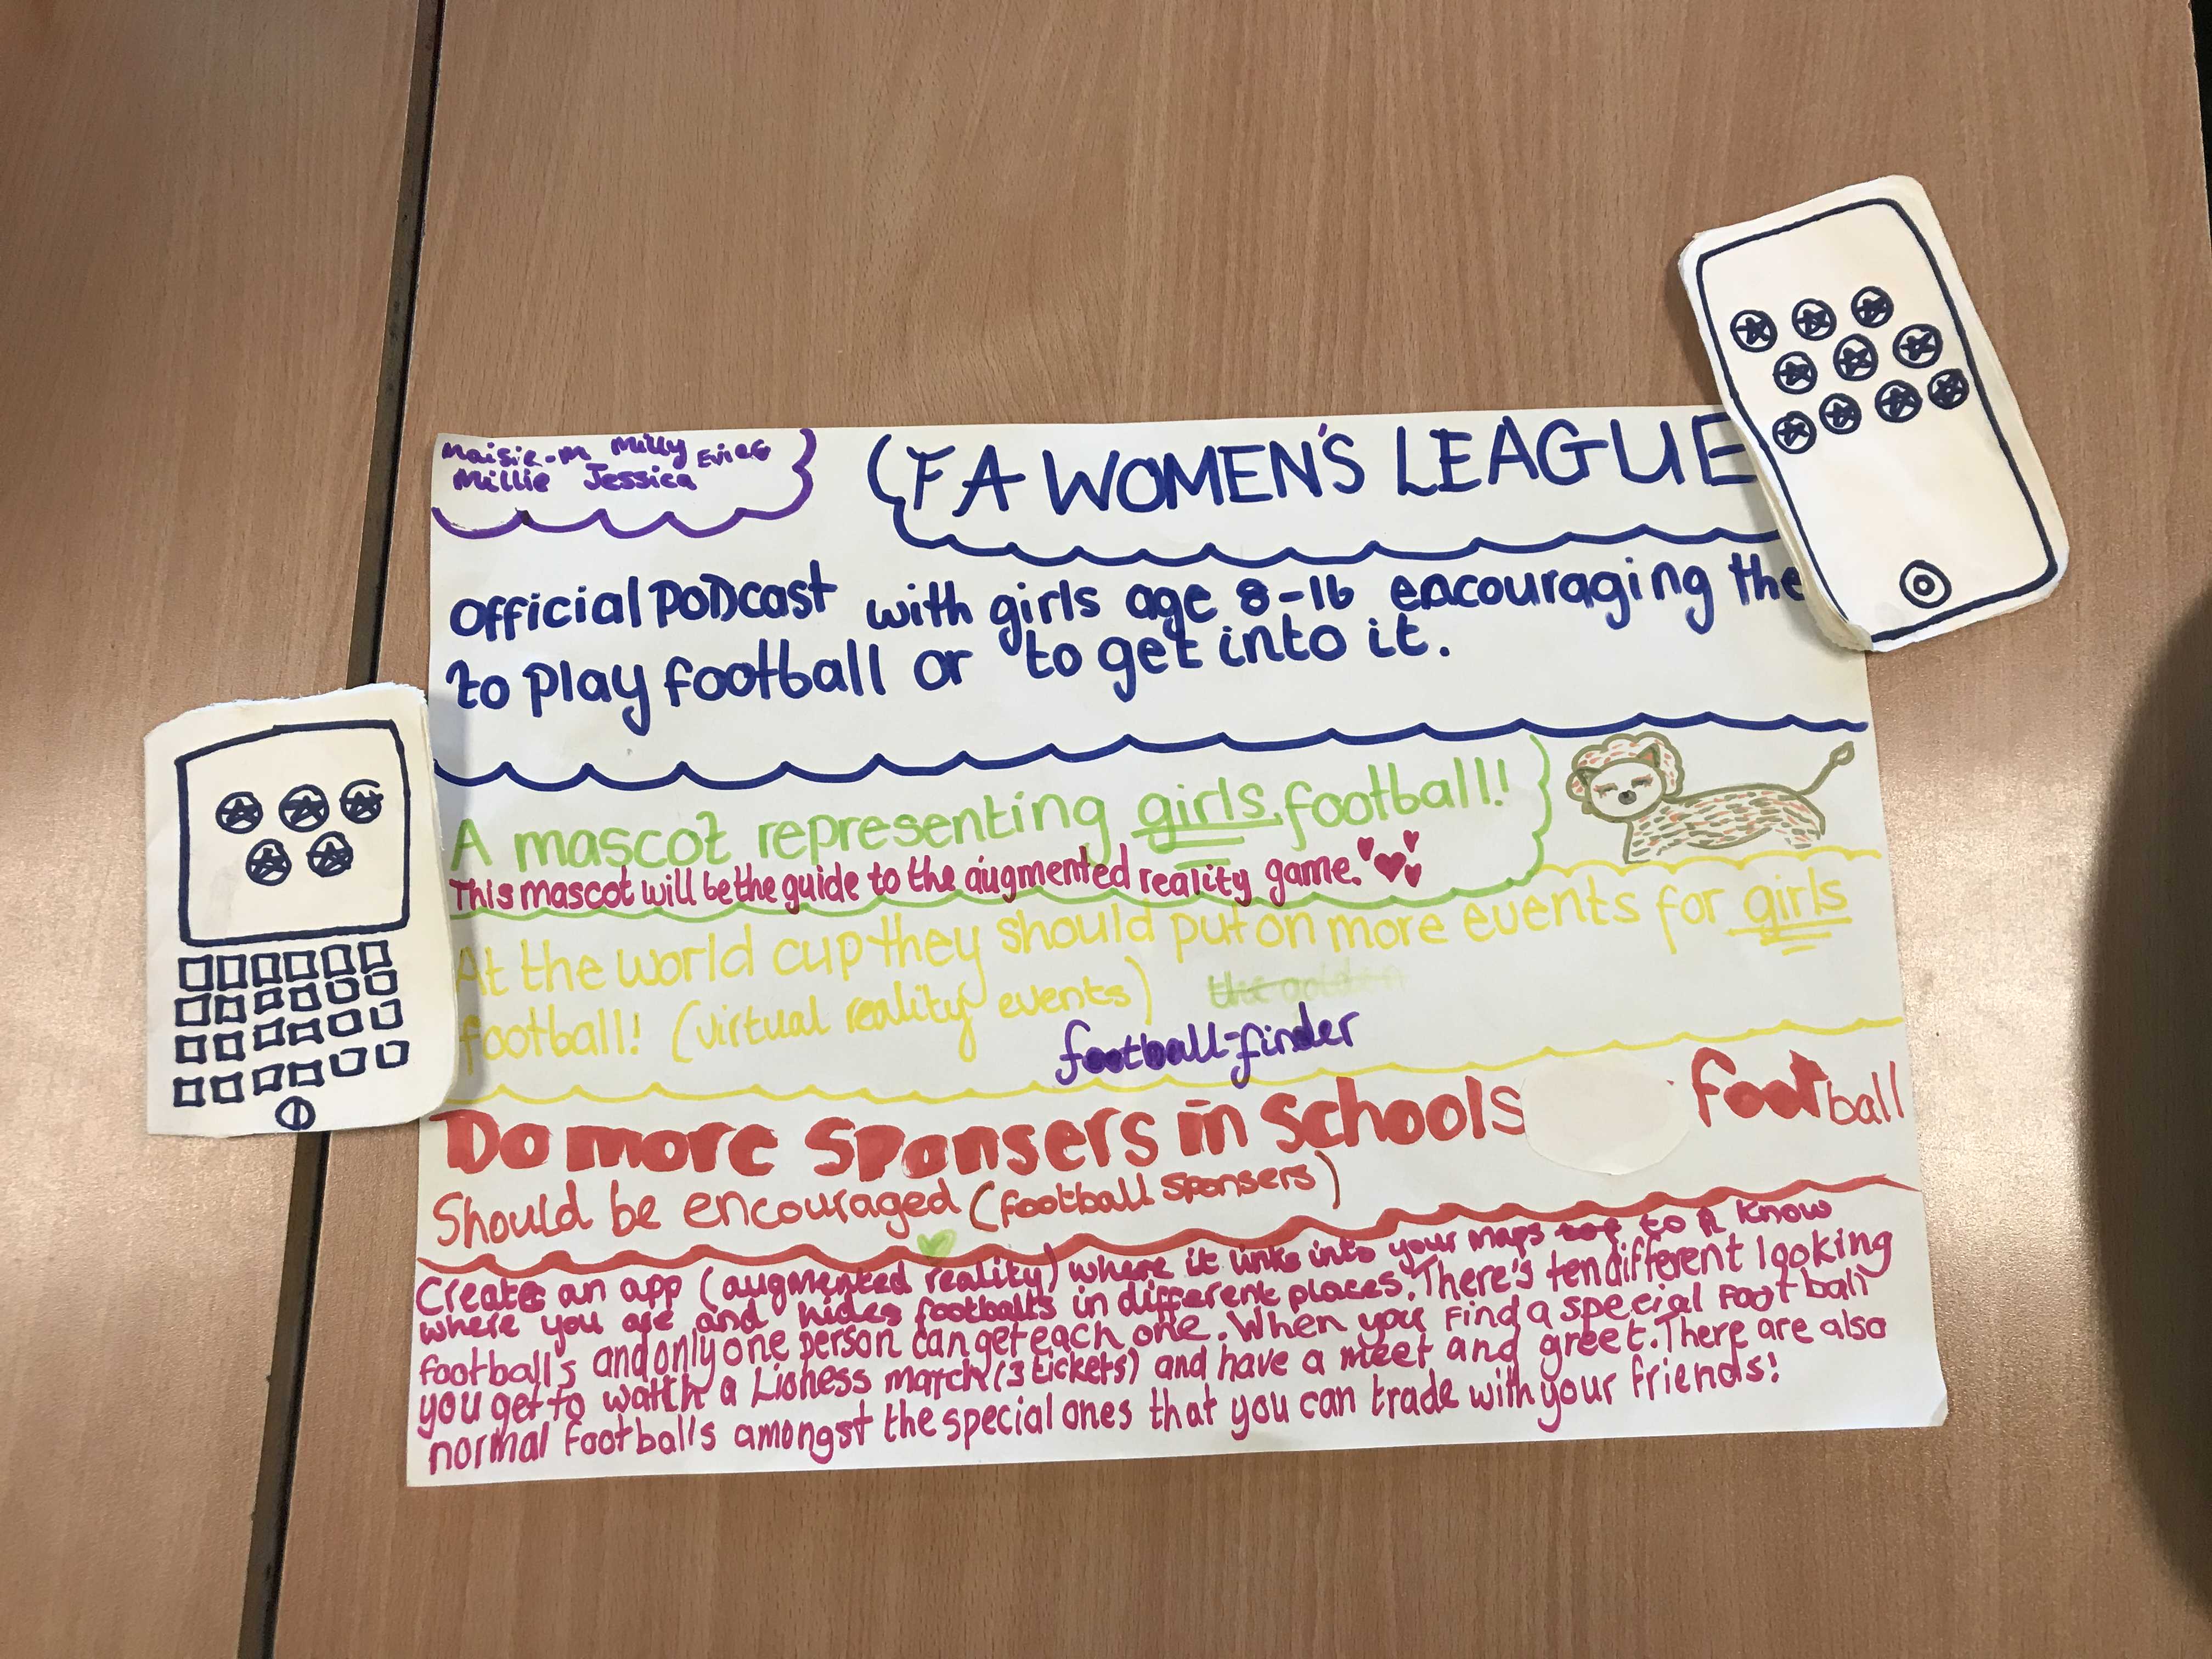 Maisie-M Milly Evie G
Millie Jessica
FA WOMEN'S LEAGUE
Official PODcast with girls age 8-16 encouraging the
to play football or to get into it.
A mascot representing girls football!!
This mascot will be the guide to the augmented reality game.
At the world cup they should put on more events for girls
football! (virtual reality events) the golden
football-finder
Do more sponsers in schools football
Should be encouraged (football sponsers)
Create an app (augmented reality) where it links into your maps to know
where you are and hides footballs in different places. There's ten different looking
football's and only one person can get each one. When you find a special football
you get to watch a Lioness match (3 tickets) and have a meet and greet. There are also
normal football's amongst the special ones that you can trade with your friends!